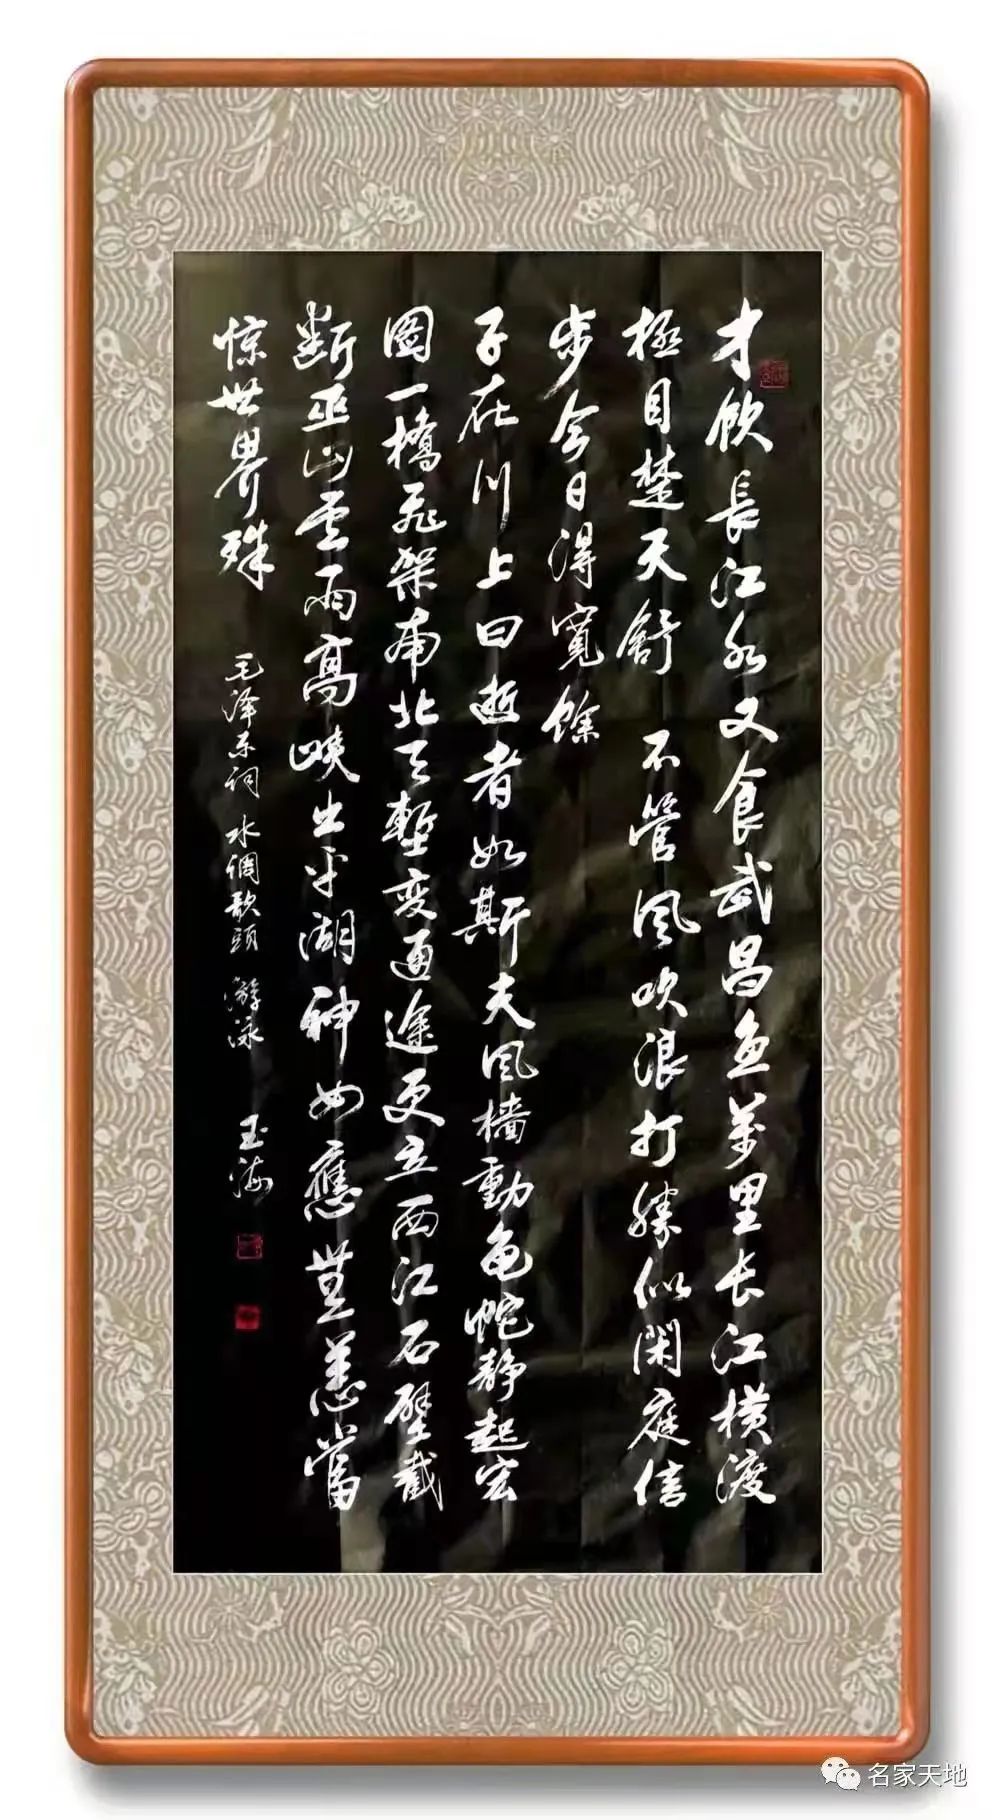 才飲長江水又食武昌鱼萬里长江横渡
極目楚天舒 不管风吹浪打勝似閑庭信
步今日得寬餘
子在川上曰逝者如斯夫风檣動龟蛇静起宏
圖一橋飛架南北天塹变通途更立西江石壁截
断巫山雲雨高峡出平湖神女應無恙當
惊世界殊
毛泽东词 水调歌頭 游泳
玉海
名家天地